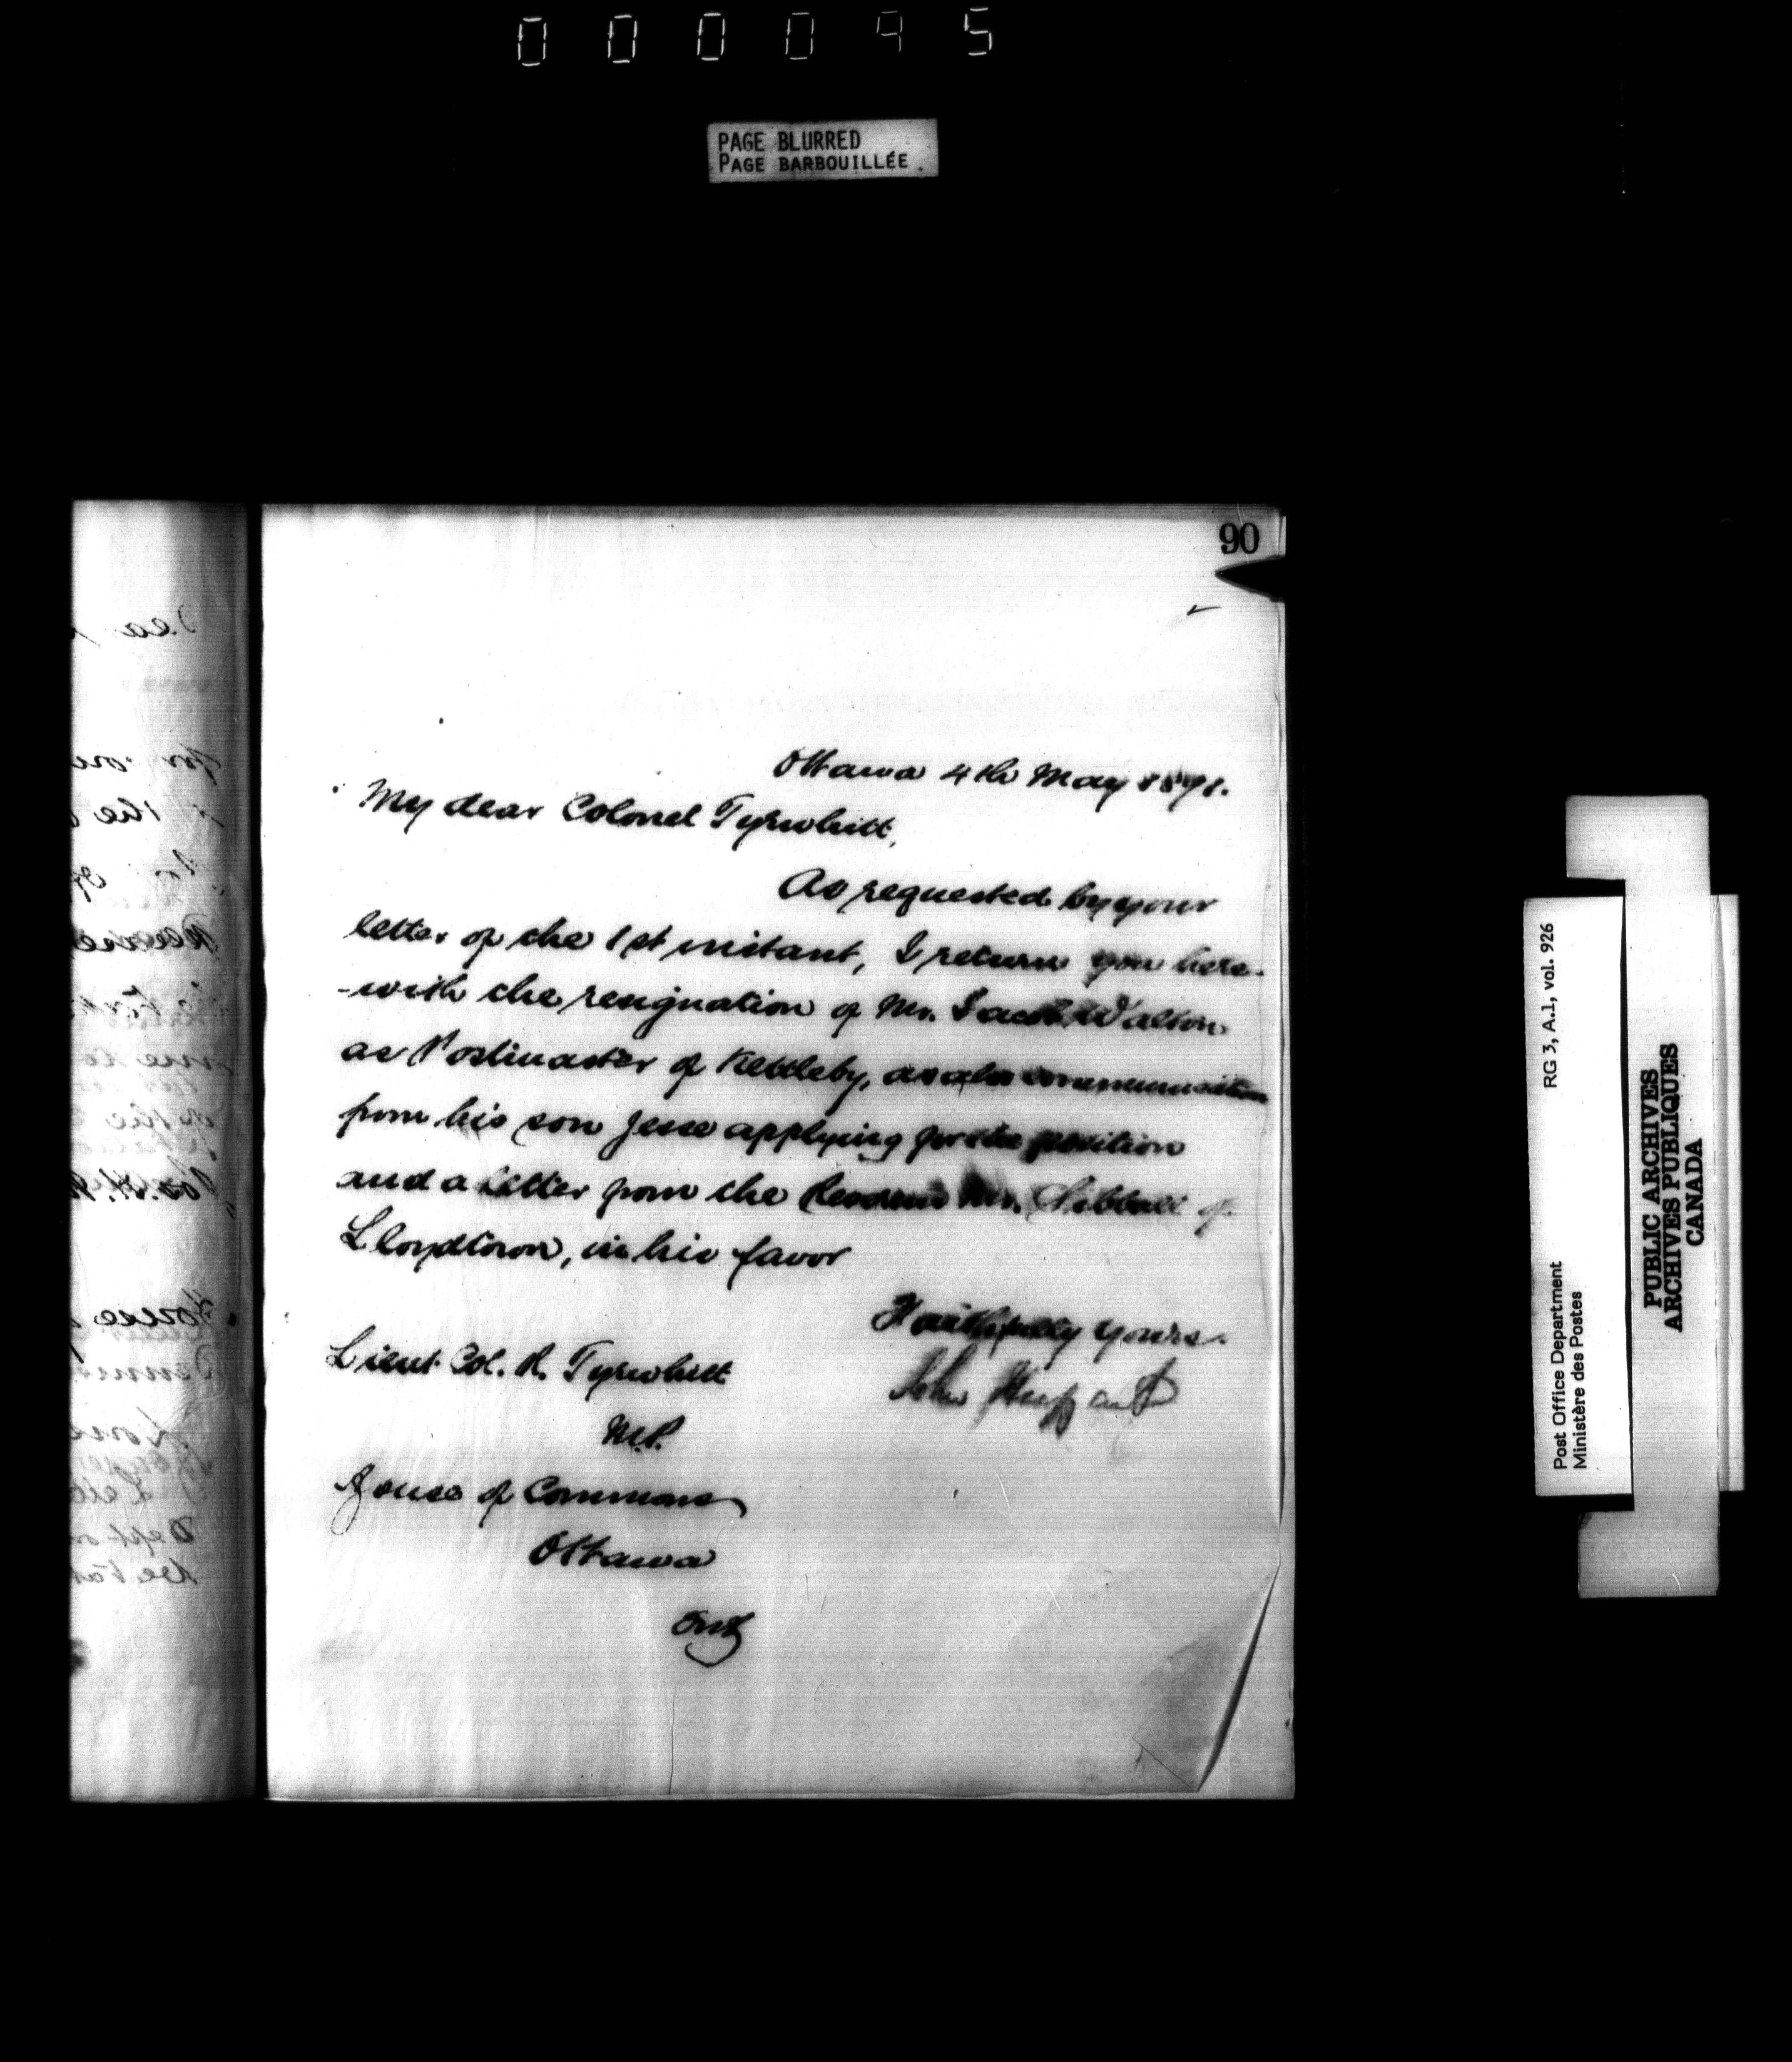 000095
PAGE BLURRED
PAGE BARBOUILLÉE
90
Ottawa 4th May 1891.
My dear Colonel Tyrwhitt,
As requested by your
letter of the 1st instant, I return you here-
-with the resignation of Mr. Walton
as Postmaster of Kettleby, as also communication
from his son Jesse applying for the position
and a letter from the Reverend Mr. Sibbald of
Lloydtown, in his favor
Faithfully yours.
John Haggart
Lieut. Col. R. Tyrwhitt
M.P.
House of Commons
Ottawa
Ont
RG 3, A.1, vol. 926
Post Office Department
Ministère des Postes
PUBLIC ARCHIVES
ARCHIVES PUBLIQUES
CANADA